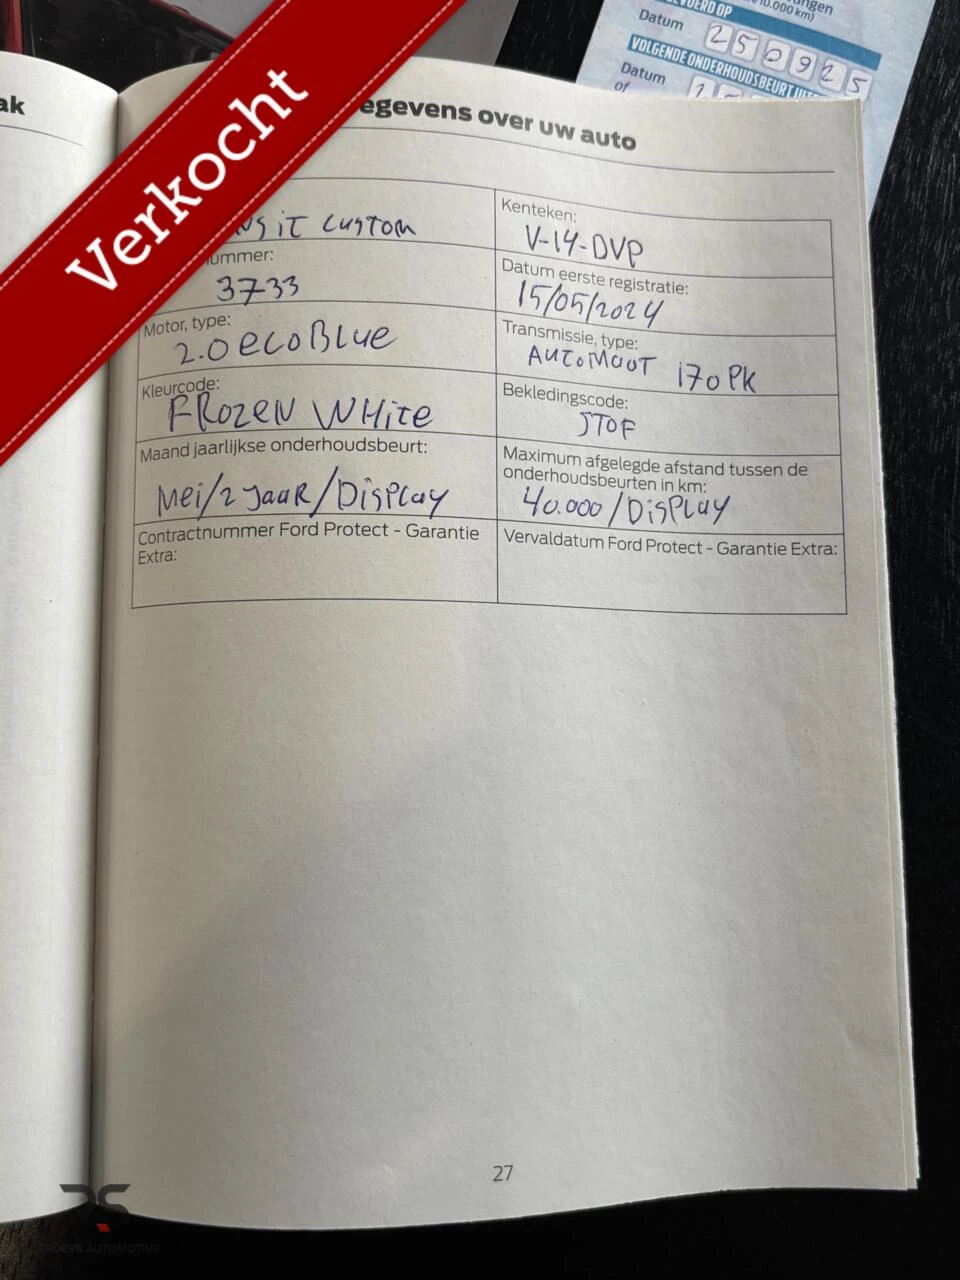 ungen
10.000 km)
Datum
250925
VOLGENDE ONDERHOUDSBEURT
Datum
of
ak
egevens over uw auto
Verkocht
Custom
Kenteken:
V-14-DVP
ummer:
3733
Datum eerste registratie:
15/05/2024
Motor, type:
2.0 ecoBlue
Transmissie, type:
AUTOMAAT 170 PK
Kleurcode:
FROZEN WHITE
Bekledingscode:
STOF
Maand jaarlijkse onderhoudsbeurt:
Mei/2 Jaar/Display
Maximum afgelegde afstand tussen de
onderhoudsbeurten in km:
40.000/Display
Contractnummer Ford Protect - Garantie
Extra:
Vervaldatum Ford Protect - Garantie Extra:
27
ROEVE AUTOMOTIVE